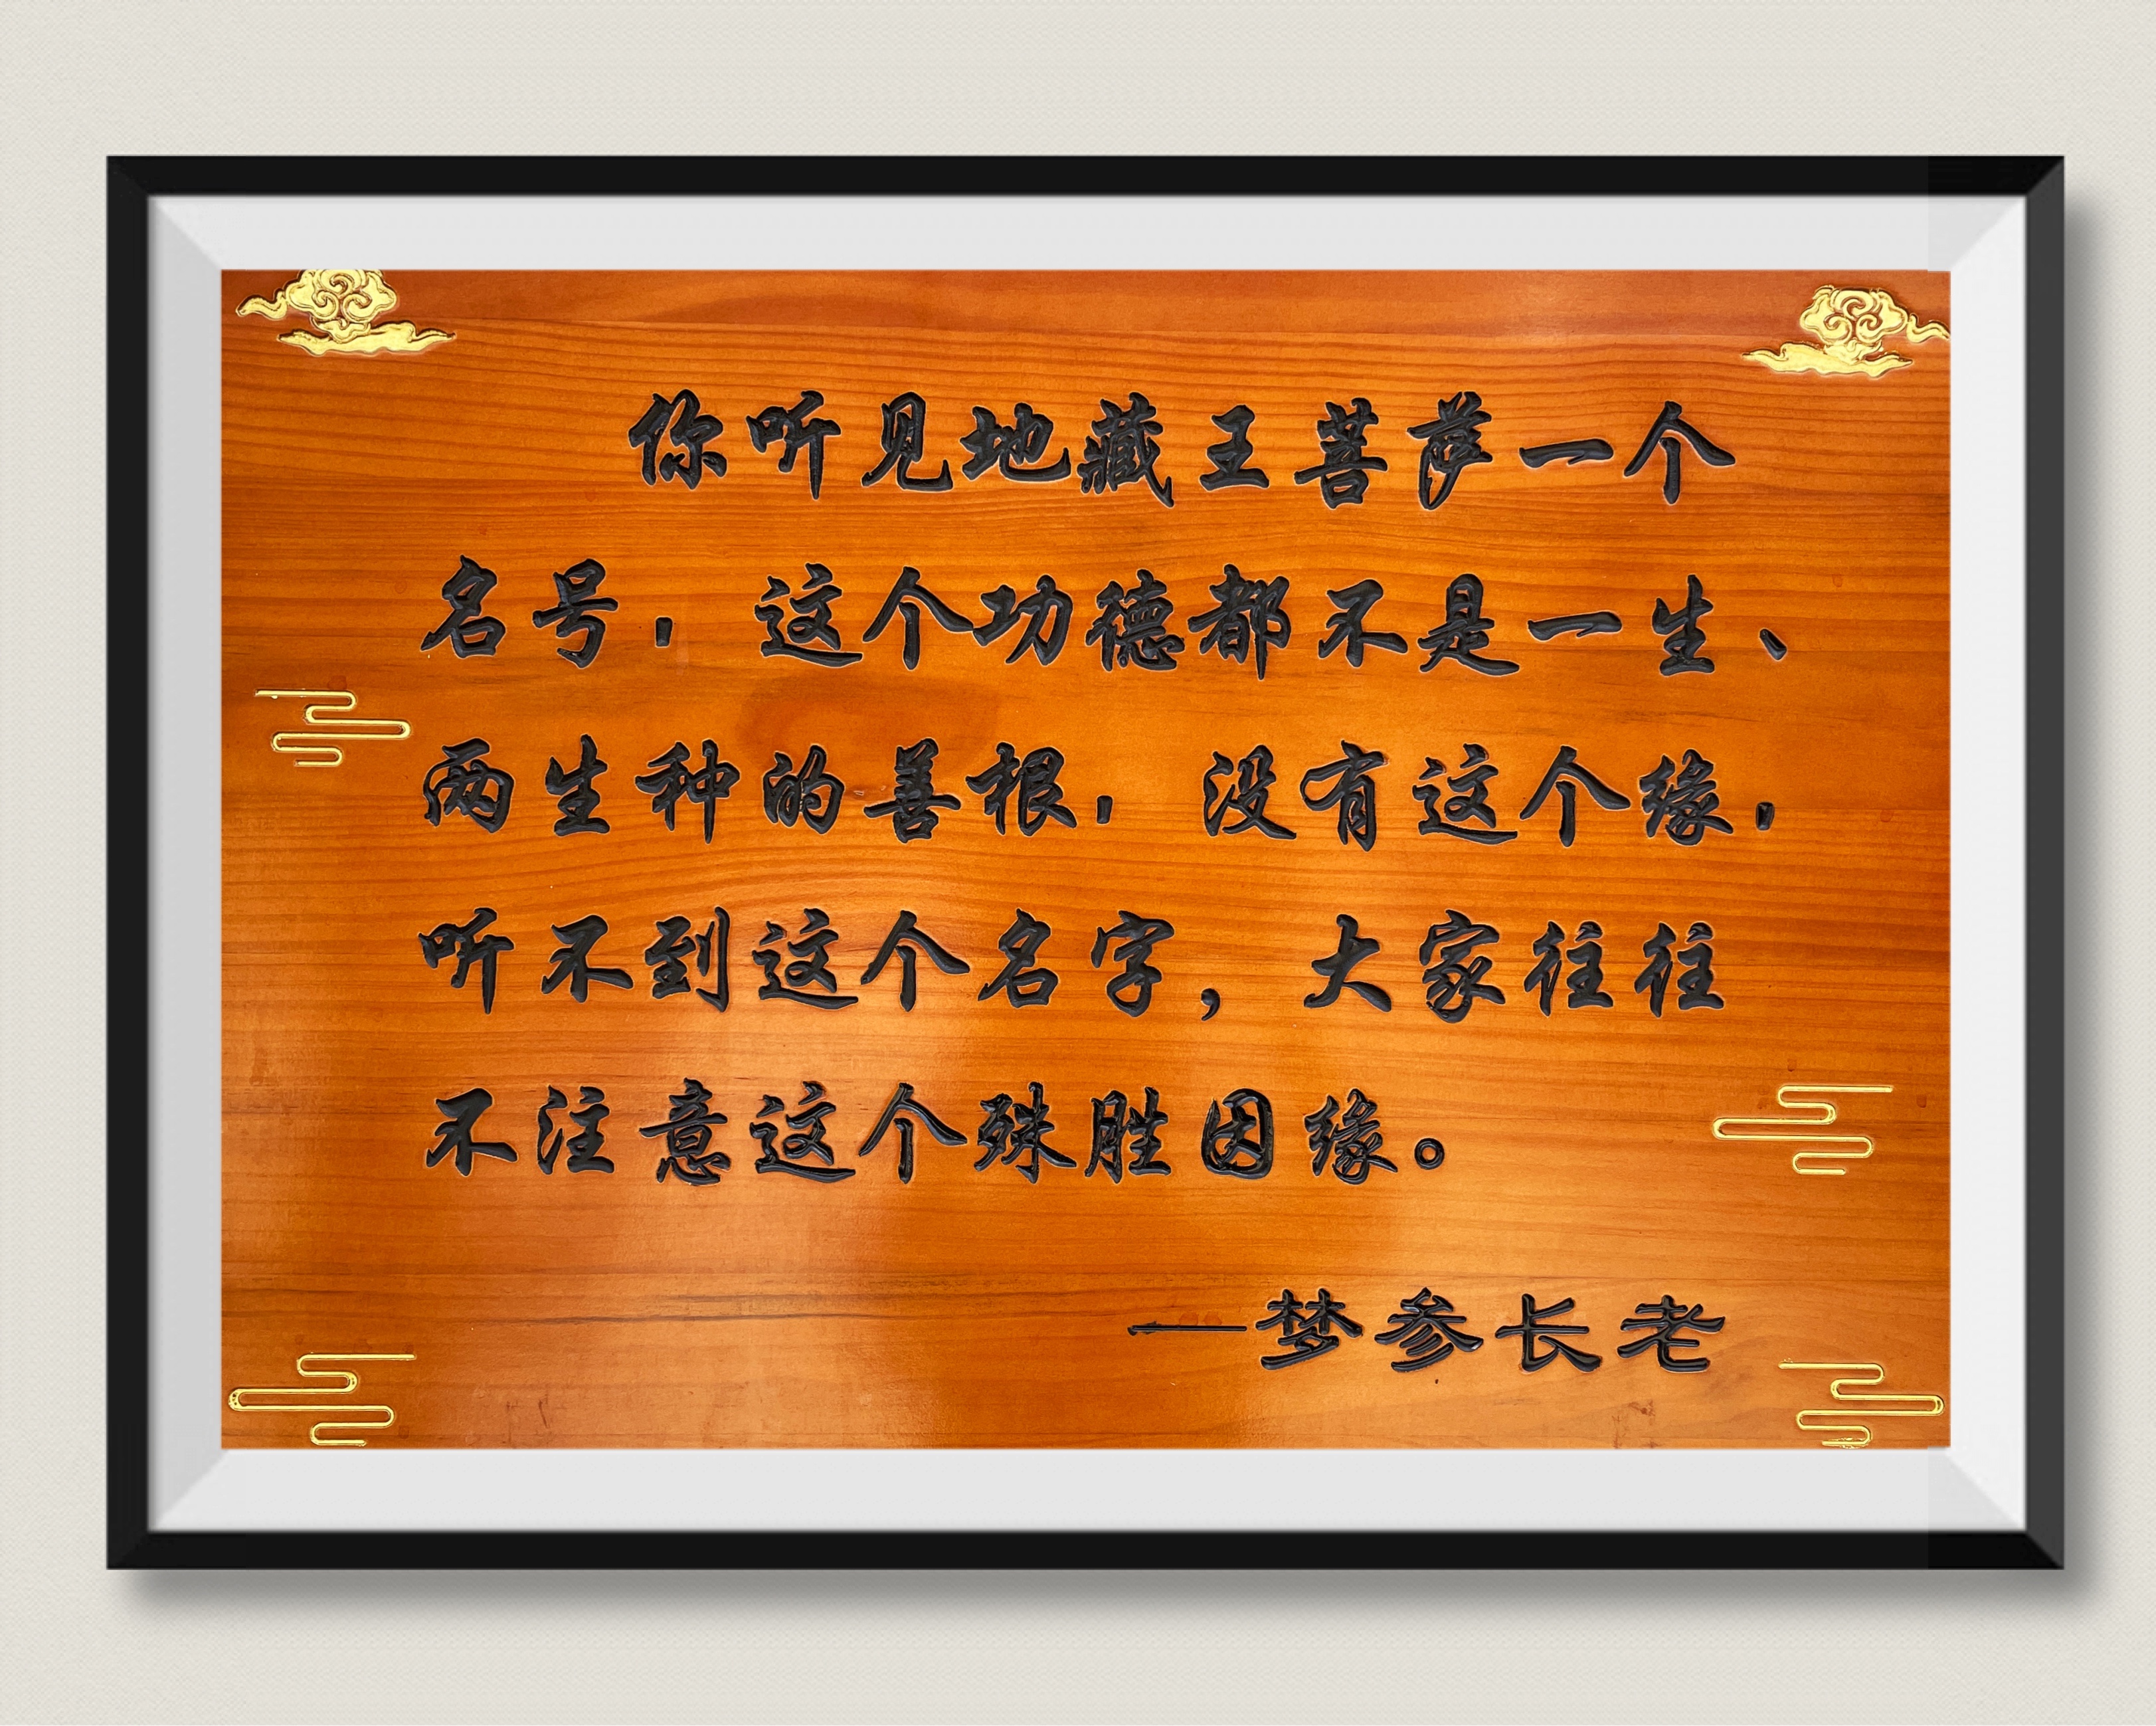 你听见地藏王菩萨一个
名号，这个功德都不是一生、
两生种的善根，没有这个缘，
听不到这个名字，大家往往
不注意这个殊胜因缘。
—梦参长老